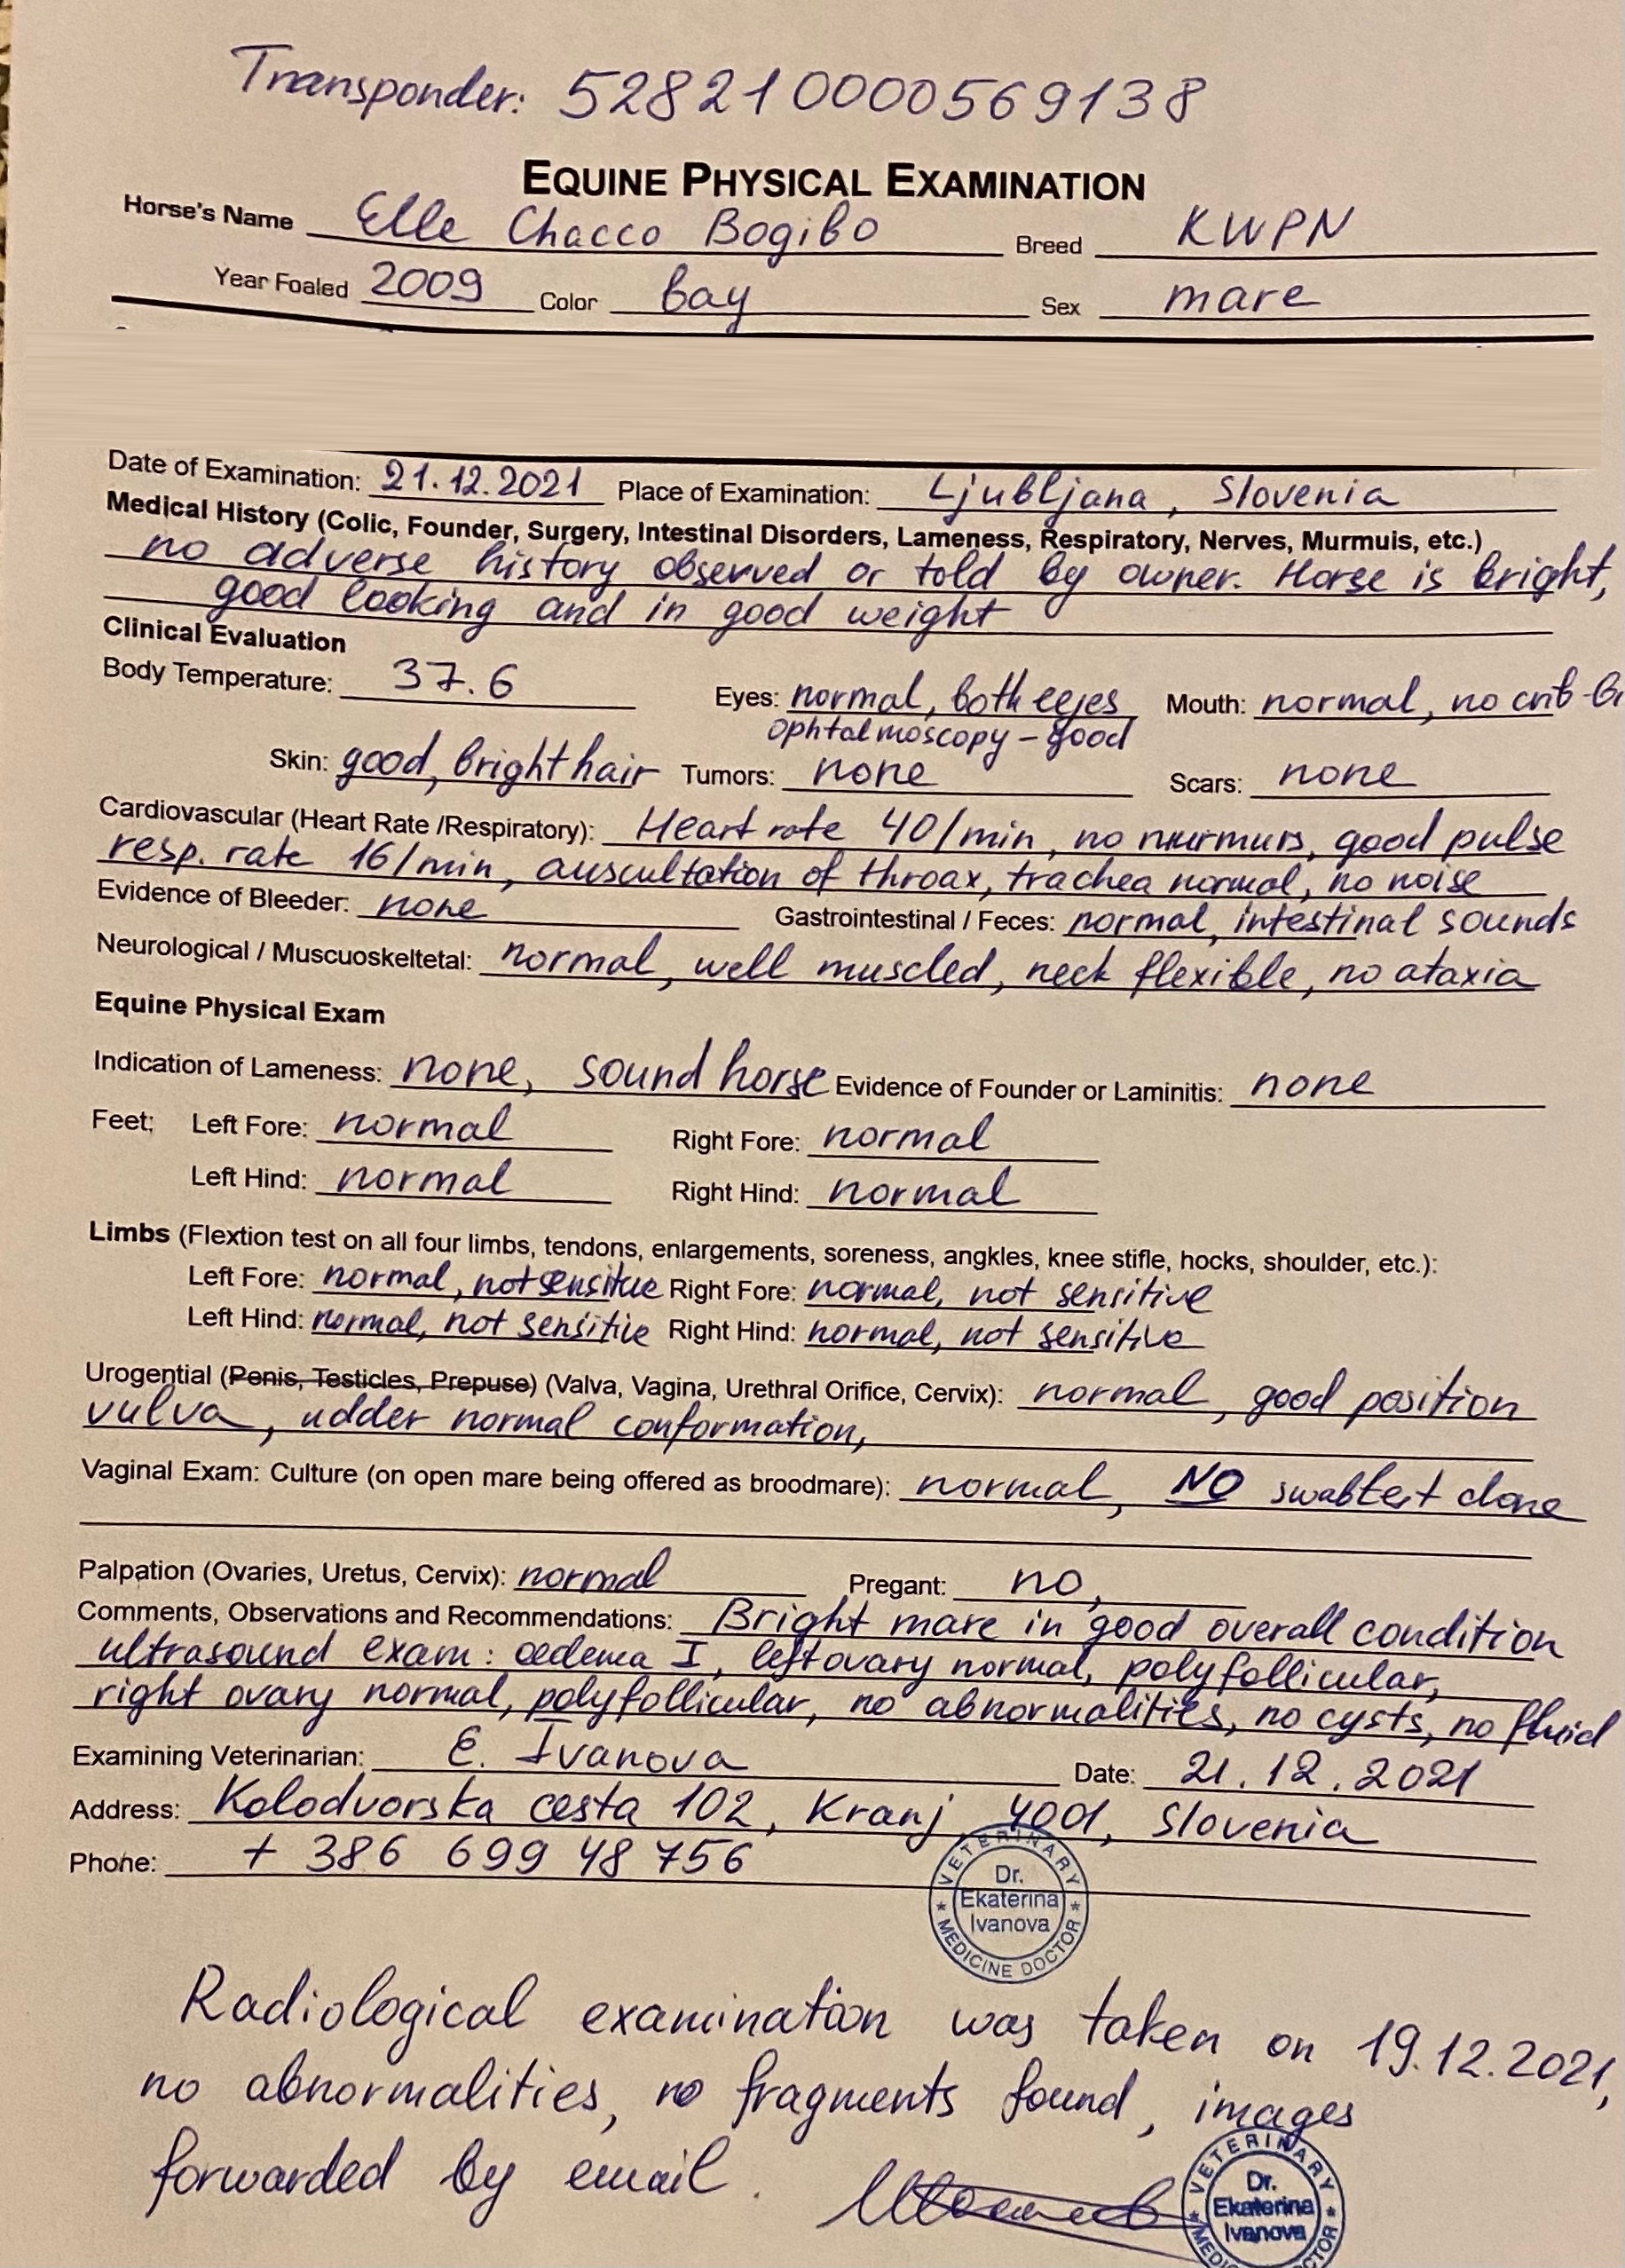 Transponder: 528210000569138
EQUINE PHYSICAL EXAMINATION
Horse's Name Elle Chacco Bogibo Breed KWPN
Year Foaled 2009 Color bay Sex mare
Date of Examination: 21.12.2021 Place of Examination: Ljubljana, Slovenia
Medical History (Colic, Founder, Surgery, Intestinal Disorders, Lameness, Respiratory, Nerves, Murmuis, etc.)
no adverse history observed or told by owner. Horse is bright,
good looking and in good weight
Clinical Evaluation
Body Temperature: 37.6 Eyes: normal, both eyes Mouth: normal, no crib-bi
ophtalmoscopy - good
Skin: good, bright hair Tumors: none Scars: none
Cardiovascular (Heart Rate /Respiratory): Heart rate 40/min, no murmurs, good pulse
resp. rate 16/min, auscultation of throax, trachea normal, no noise
Evidence of Bleeder: none Gastrointestinal / Feces: normal, intestinal sounds
Neurological / Muscuoskeltetal: normal, well muscled, neck flexible, no ataxia
Equine Physical Exam
Indication of Lameness: none, sound horse Evidence of Founder or Laminitis: none
Feet; Left Fore: normal Right Fore: normal
Left Hind: normal Right Hind: normal
Limbs (Flextion test on all four limbs, tendons, enlargements, soreness, angkles, knee stifle, hocks, shoulder, etc.):
Left Fore: normal, not sensitive Right Fore: normal, not sensitive
Left Hind: normal, not sensitive Right Hind: normal, not sensitive
Urogential (Penis, Testicles, Prepuse) (Valva, Vagina, Urethral Orifice, Cervix): normal, good position
vulva, udder normal conformation,
Vaginal Exam: Culture (on open mare being offered as broodmare): normal, NO swabtest done
Palpation (Ovaries, Uretus, Cervix): normal Pregant: no,
Comments, Observations and Recommendations: Bright mare in good overall condition
ultrasound exam: oedema I, left ovary normal, polyfollicular,
right ovary normal, polyfollicular, no abnormalities, no cysts, no fluid
Examining Veterinarian: E. Ivanova Date: 21.12.2021
Address: Kolodvorska cesta 102, Kranj, 4001, Slovenia
Phone: + 386 699 48 756
VETERINARY
Dr.
Ekaterina
Ivanova
MEDICINE DOCTOR
Radiological examination was taken on 19.12.2021,
no abnormalities, no fragments found, images
forwarded by email.
VETERINARY
Dr.
Ekaterina
Ivanova
MEDICINE DOCTOR